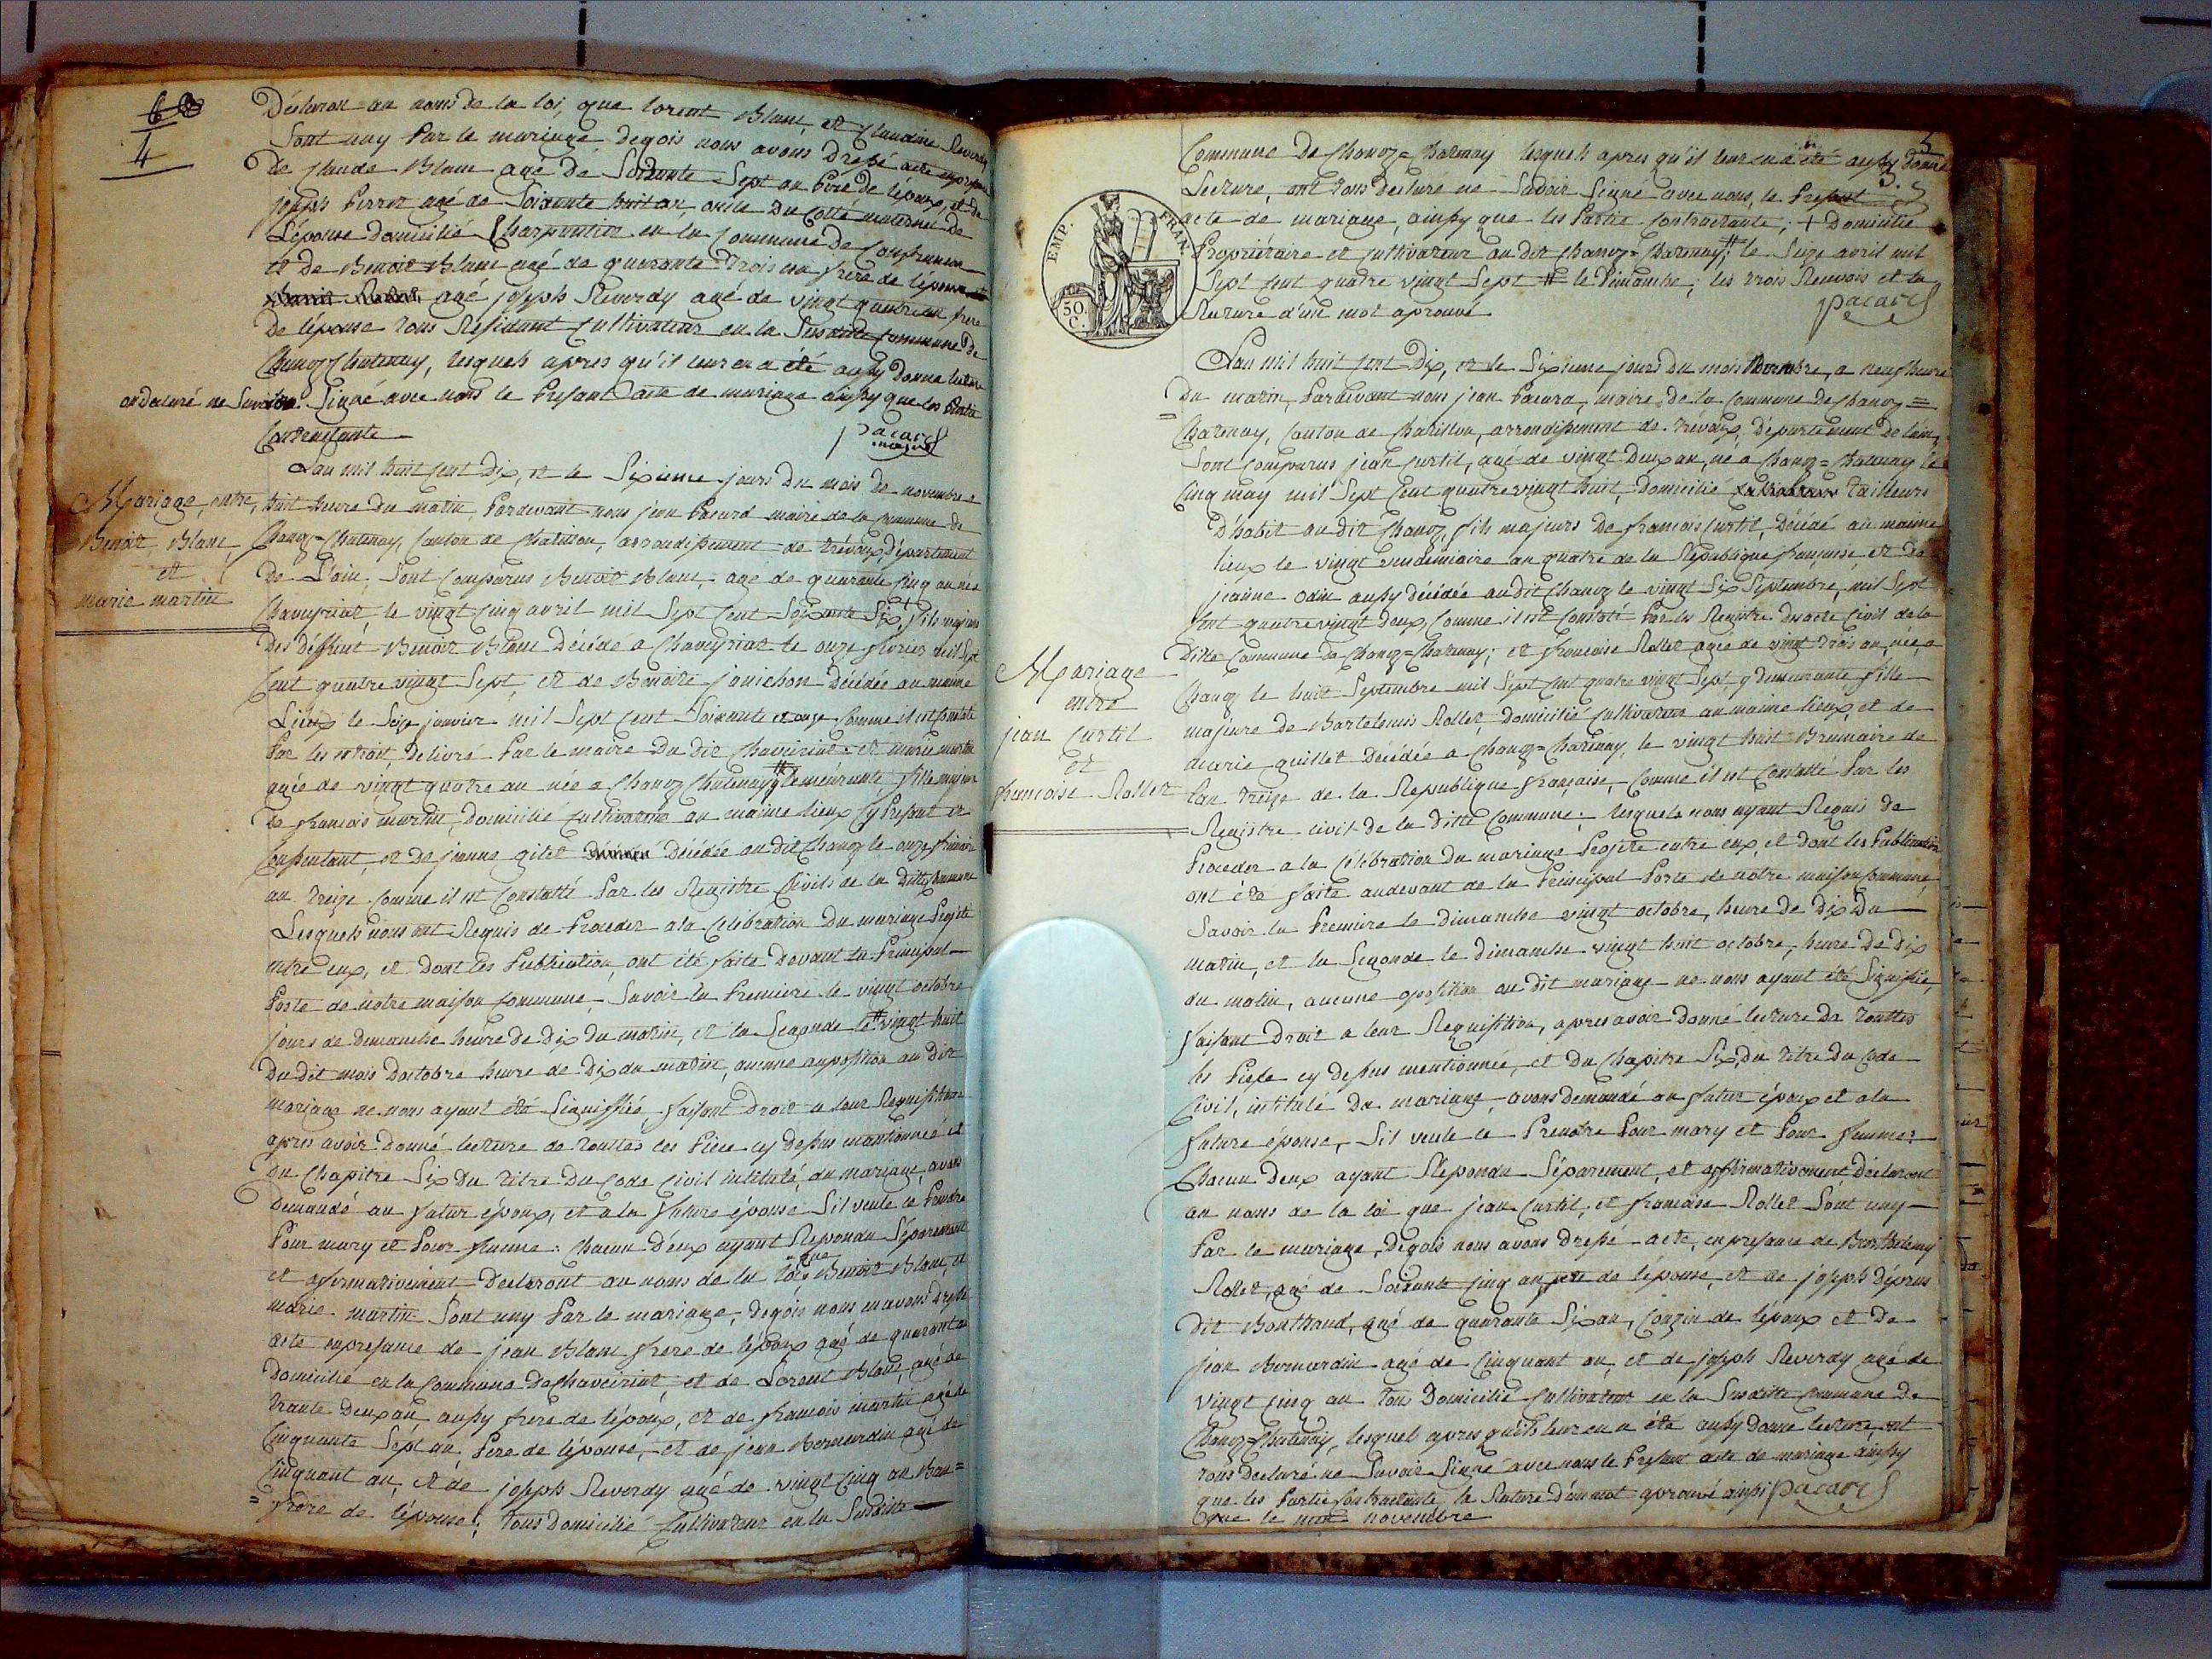 6
4
Déclaron au noms de la loi, que lorent Blanc, et Claudine Reverdy
Sont uny Par le mariage degois nous avons Dressé acte en presance
De Claude Blanc agé de Soixante Sept an Père de l'époux, et de
joseph Perret agé de Soixante huit an, oncle du Cotté maternel de
L'épouse domicilié Charpentier en la Commune de Confrancon
et de Benoit Blanc agé de quarante trois an frere de l'époux et
agé joseph Reverdy agé de vingt quatre an frere
De l'épouse tous Residant Cultivateur en la Susditte Commune de
Chanoz Chatenay, lesquels apres qu'il leur en a été aussy donné lecture
on declaré ne Savoire Signé avec nous le Presant acte de mariage ainssy que les Partie
Contractante
Pacard
maire
Mariage, entre,
Benoit Blanc,
et
marie martin
Lan mil huit Cent Dix, et le Sixieme jours du mois de novembre a
huit heure du matin, Pardevant nous jean Pacard maire de la Commune de
Chanoz=Chatenay, Canton de Chatillon, arrondissement de Trévoux, département
de L'ain, Sont Comparus Benoit Blanc, agé de quarante Cinq an née
Chaveyriat, le vingt Cinq avril mil Sept Cent Soixante Six, fils majeur
Des déffunt Benoit Blanc Décédé a Chaveyriat le onze fevrier mil Sept
Cent quatre vingt Sept, et de Benoite jouichon Décédée au maime
Lieux le Seize janvier mil Sept Cent Soixante et onze Comme il est Constaté
Par les extrait Delivré Par le maire du dit Chaveiriat et marie martin
agée de vingt quatre an née a Chanoz Chatenay # y demeurante, fille majeure
De francois martin, domicilié Cultivateur au maime lieux Cy Presant et
Consentant, et de jeanne gilet Décédée au dit Chanoz le onze frimaire
an treize Comme il est Constatté Par les Registre Civils de la ditte Commune
Lesquels nous ont Requis de Proceder a la Célébration du mariage Projeté
entre eux, et dont les Publication ont été faite Devant la Principal
Porte de notre maison Commune, Savoir la Premiere le vingt octobre
jours de dimanche heure de Dix du matin, et la Segonde le vingt huit
Du dit mois Doctobre heure de Dix du matin, aucune auposition au dit
mariage ne nous ayant été Signiffiée, faisant Droit a leur Requisition
apres avoir donné lecture de touttes les Piece cy dessus mentionnée et
du Chapitre Six du titre du Code Civil intitulé, du mariage, avons
Demandé au futur époux, et a la future épouse Sil veule ce Prendre
Pour mary et Pour femme: Chacun D'eux ayant Repondu Séparement
et affirmativement Declaront au noms de la loi, que Benoit Blanc, et
marie martin Sont uny Par le mariage, degois nous en avons dressé
acte en presance de jean Blanc frere de l'époux agé de quarante an
Domicilié en la Commune de Chaveiriat, et de Lorent Blanc, agé de
trante Deux an aussy frere de l'époux, et de francois martin agé de
Cinquante Sept an Pere de l'épouse, et de jean Bernardin agé de
Cinquant an, et de joseph Reverdy agé de vingt Cinq an Bau=
=frere de l'épouse; tous Domicilié Cultivateur en la Susditte
5
Commune De Chanoz=Chatenay lesquels apres qu'il leur en a été aussy donné
Lecture, ont tous declaré ne Savoir Signé avec nous, le Presant
acte de mariage, ainssy que les Partie Contractante; + Domicilié
Propriétaire et Cultivateur au dit Chanoz=Chatenay; # le Seize avril mil
Sept Cent quatre vingt Sept # le Dimanche; les trois Renvois et la
Rature d'un mot aprouvé
Pacard
EMP. FRAN.
50 C.
Mariage
entre
jean Curtil
et
francoise Rollet
Lan mil huit Cent Dix, et le Sixieme jours du mois Novembre, a neuf heure
Du matin, Pardevant nous jean Pacard, maire de la Commune de Chanoz=
=Chatenay, Canton de Chatillon, arrondissement de Trévoux, département de lain,
Sont Comparus jean Curtil, agé de vingt Deux an, né a Chanoz=Chatenay le
Cinq may mil Sept Cent quatre vingt huit, Domicilié tailleurs
D'habit au dit Chanoz, fils majeurs De francois Curtil, Décédé au maime
lieux le vingt vendémiaire an quatre de la République francaise et de
jeanne Odin aussy décédée au dit Chanoz le vingt Six Septembre, mil Sept
Cent quatre vingt douz, Comme il est Constaté Par les Registre Des acte Civil de la
Ditte Commune de Chanoz=Chatenay; et francoise Rollet agée de vingt trois an, née, a
Chanoz le huit Septembre mil Sept Cent quatre vingt Sept, y demeurante fille
majeure de Bartelemis Rollet, Domicilié Cultivateur au maime lieux, et de
Marie guillet Décédée a Chanoz=Chatenay, le vingt huit Brumaire de
Lan treize de la Republique francaise, Comme il est Constatté Par les
Registre civil de la ditte Commune; lesquels nous ayant Requis de
Proceder a la Célébration du mariage Projeté entre eux, et dont les Publication
ont été faite audevant de la Principal Porte de notre maison Commune,
Savoir la Premiere le dimanche vingt octobre, heure de Dix Du
matin, et la Segonde le dimanche vingt huit octobre, heure de Dix
du matin, aucune oposition au dit mariage ne nous ayant été Signiffiée,
faisant Droit a leur Requisition, apres avoir donné lecture de touttes
les Piesse cy dessus mentionnée, et du Chapitre Six, du titre du Code
Civil, intitulé du mariage, avons demandé au futur époux et a la
future épouse, Sil veule ce Prendre Pour mary et Pour femme:
Chacun Deux ayant Répondu Séparement, et affirmativement, Declaront
au noms de la loi que jean Curtil, et francoise Rollet Sont uny
Par le mariage, degois nous avons dressé acte, en presance de Barthelemy
Rollet, agé de Soixante Cinq an Pere de l'épouse, et de joseph Dépras
dit Bonthoud, agé de quarante Six an, Couzin de l'époux et De
jean Bernardin agé de Cinquant an et de joseph Reverdy agé de
vingt Cinq an tous Domicilié Cultivateur en la Susditte Commune De
Chanoz=Chatenay, lesquel apres qu'ils leur en a été aussy donné lecture, ont
tous declaré ne Savoir Signé avec nous le Presant acte de mariage ainssy
que les Partie Contractante, la Rature d'un mot aprouvé ainsi Pacard
que le mot novembre